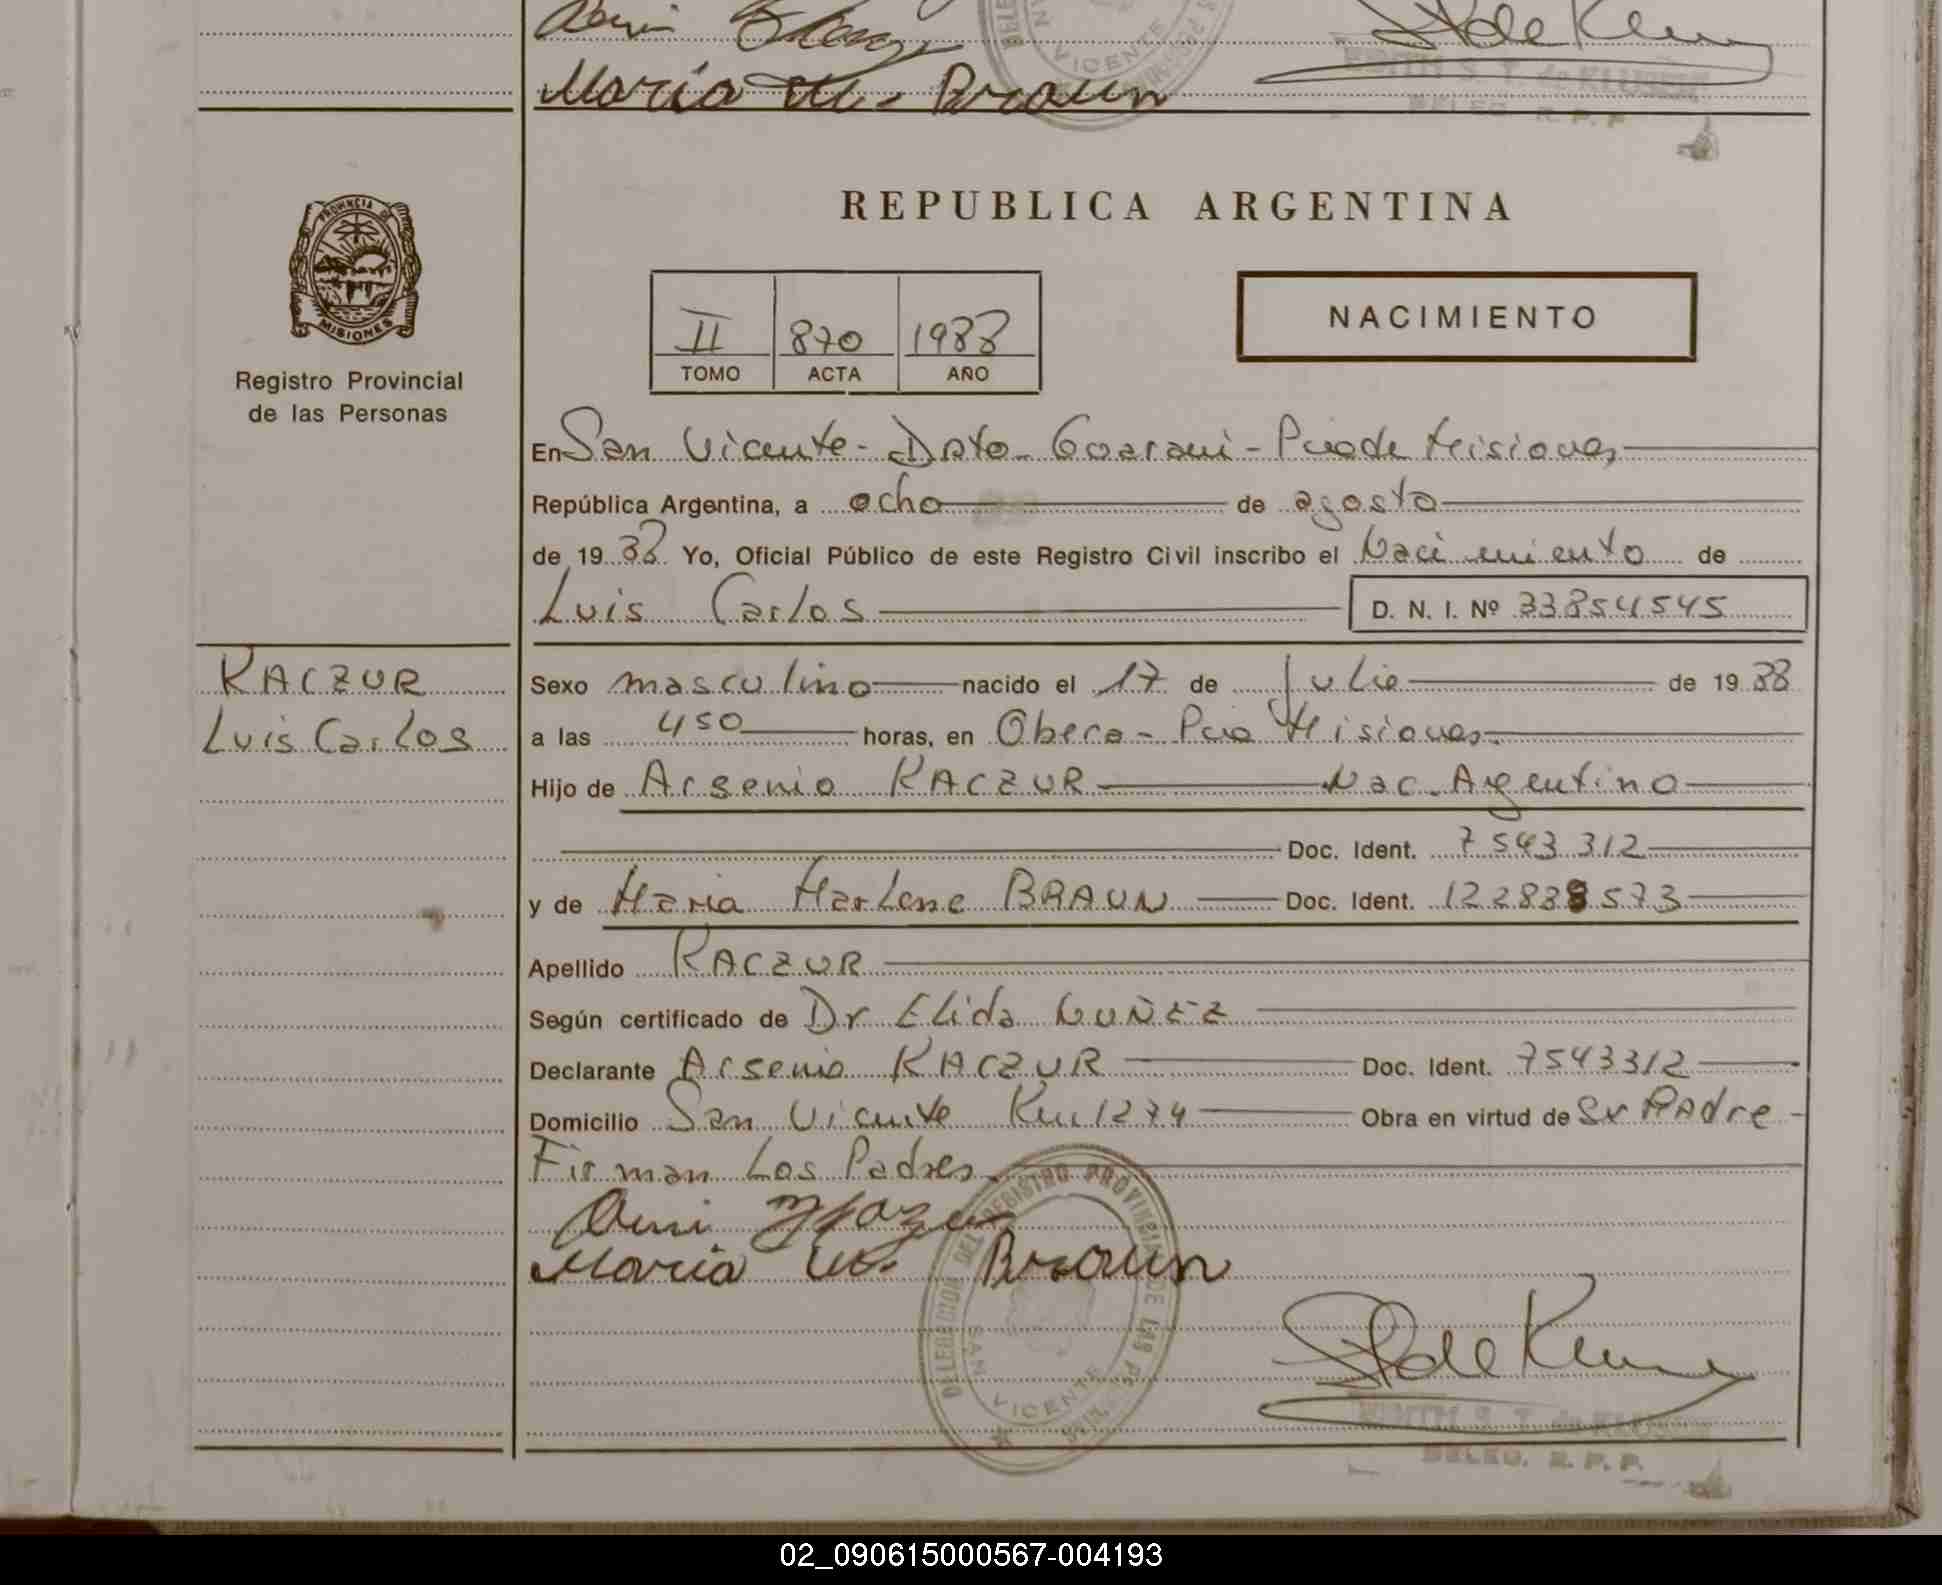 María M. Braun
VICENTE
EDITH S. T. de KLUSEN
DELEG. R. P. P.
PROVINCIA DE
MISIONES
Registro Provincial
de las Personas
REPUBLICA ARGENTINA
II 870 1988
TOMO ACTA AÑO
NACIMIENTO
En San Vicente - Dpto. Guaraní - Pcia de Misiones
República Argentina, a ocho de agosto
de 19 88 Yo, Oficial Público de este Registro Civil inscribo el Nacimiento de
Luis Carlos D. N. I. Nº 33854545
KACZUR
Luis Carlos
Sexo masculino nacido el 17 de Julio de 19 88
a las 450 horas, en Obera - Pcia Misiones.
Hijo de Arsenio KACZUR Nac. Argentino
Doc. Ident. 7543312
y de Maria Marlene BRAUN Doc. Ident. 122838573
Apellido KACZUR
Según certificado de Dr Elida NUÑEZ
Declarante Arsenio KACZUR Doc. Ident. 7543312
Domicilio San Vicente Km 1274 Obra en virtud de Sr PAdre
Firman Los Padres.
María M. Braun
DELEGACION DEL REGISTRO PROVINCIAL DE LAS
SAN VICENTE
EDITH S. T. de KLUSEN
DELEG. R. P. P.
02_090615000567-004193